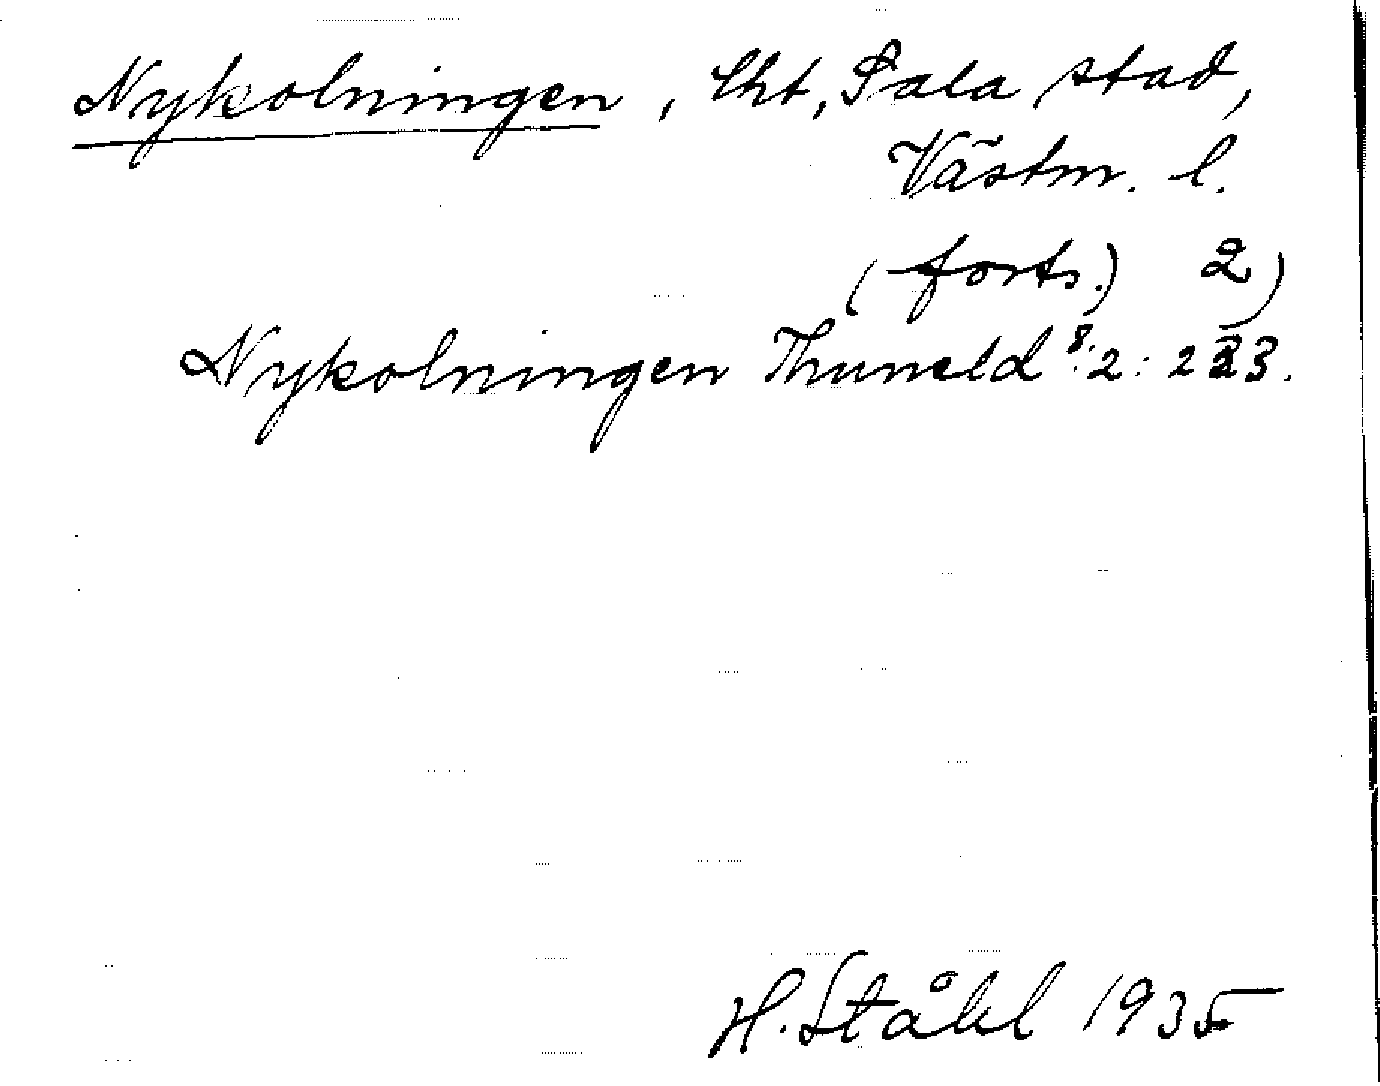 Nykolningen, lht, Sala stad,
Västm. l.
(forts.) 2)
Nykolningen Tuneld 8: 2: 233.
H. Ståhl 1935